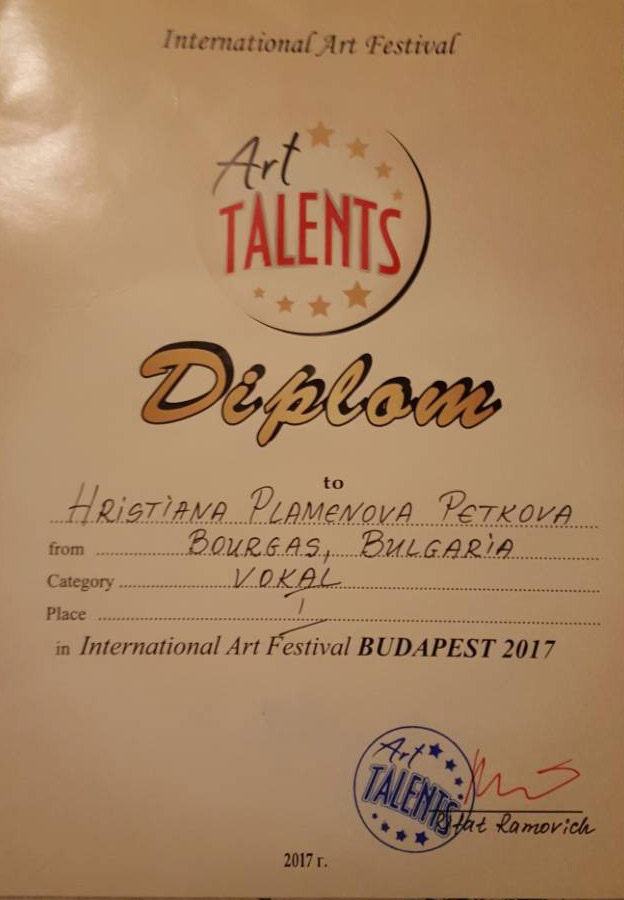 International Art Festival
Art
TALENTS
Diplom
to
HRISTIANA PLAMENOVA PETKOVA
from BOURGAS, BULGARIA
Category VOKAL
Place I
in International Art Festival BUDAPEST 2017
Art
TALENTS
Ramovich
2017 г.